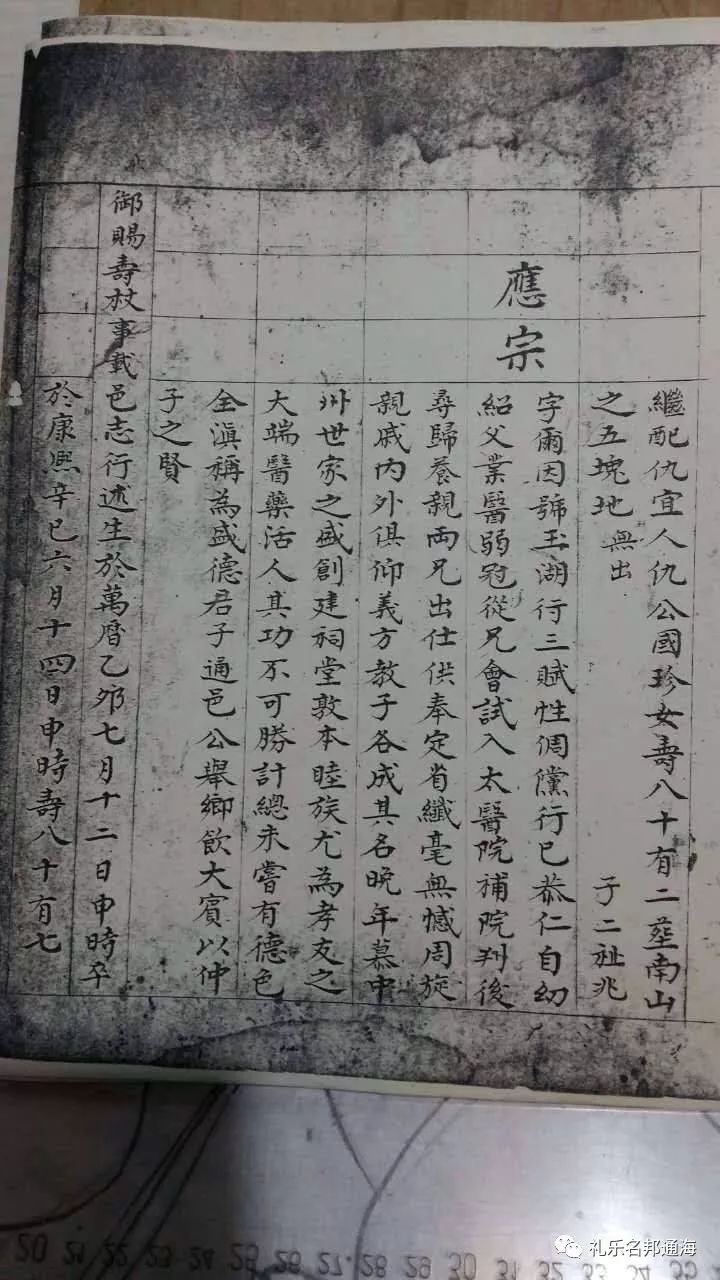 繼配仇宜人仇公國珍女壽八十有二塟南山
之五塊地 無出 子二祉兆
應宗
字爾因號玉湖行三賦性倜儻行已恭仁自幼
紹父業醫弱冠從兄會試入太醫院補院判後
尋歸養親両兄出仕供奉定省纖毫無憾周旋
親戚内外俱仰義方教子各成其名晚年慕中
州世家之盛創建祠堂敦本睦族尤為孝友之
大端醫藥活人其功不可勝計總未嘗有德色
全滇稱為盛德君子通邑公舉鄉飲大賓以仲
子之賢
御賜壽杖事載邑志行述生於萬曆乙夘七月十二日申時卒
於康熈辛巳六月十四日申時壽八十有七
礼乐名邦通海
20 21 22 23 24 25 26 27 28 29 30 31 32 33 34 35